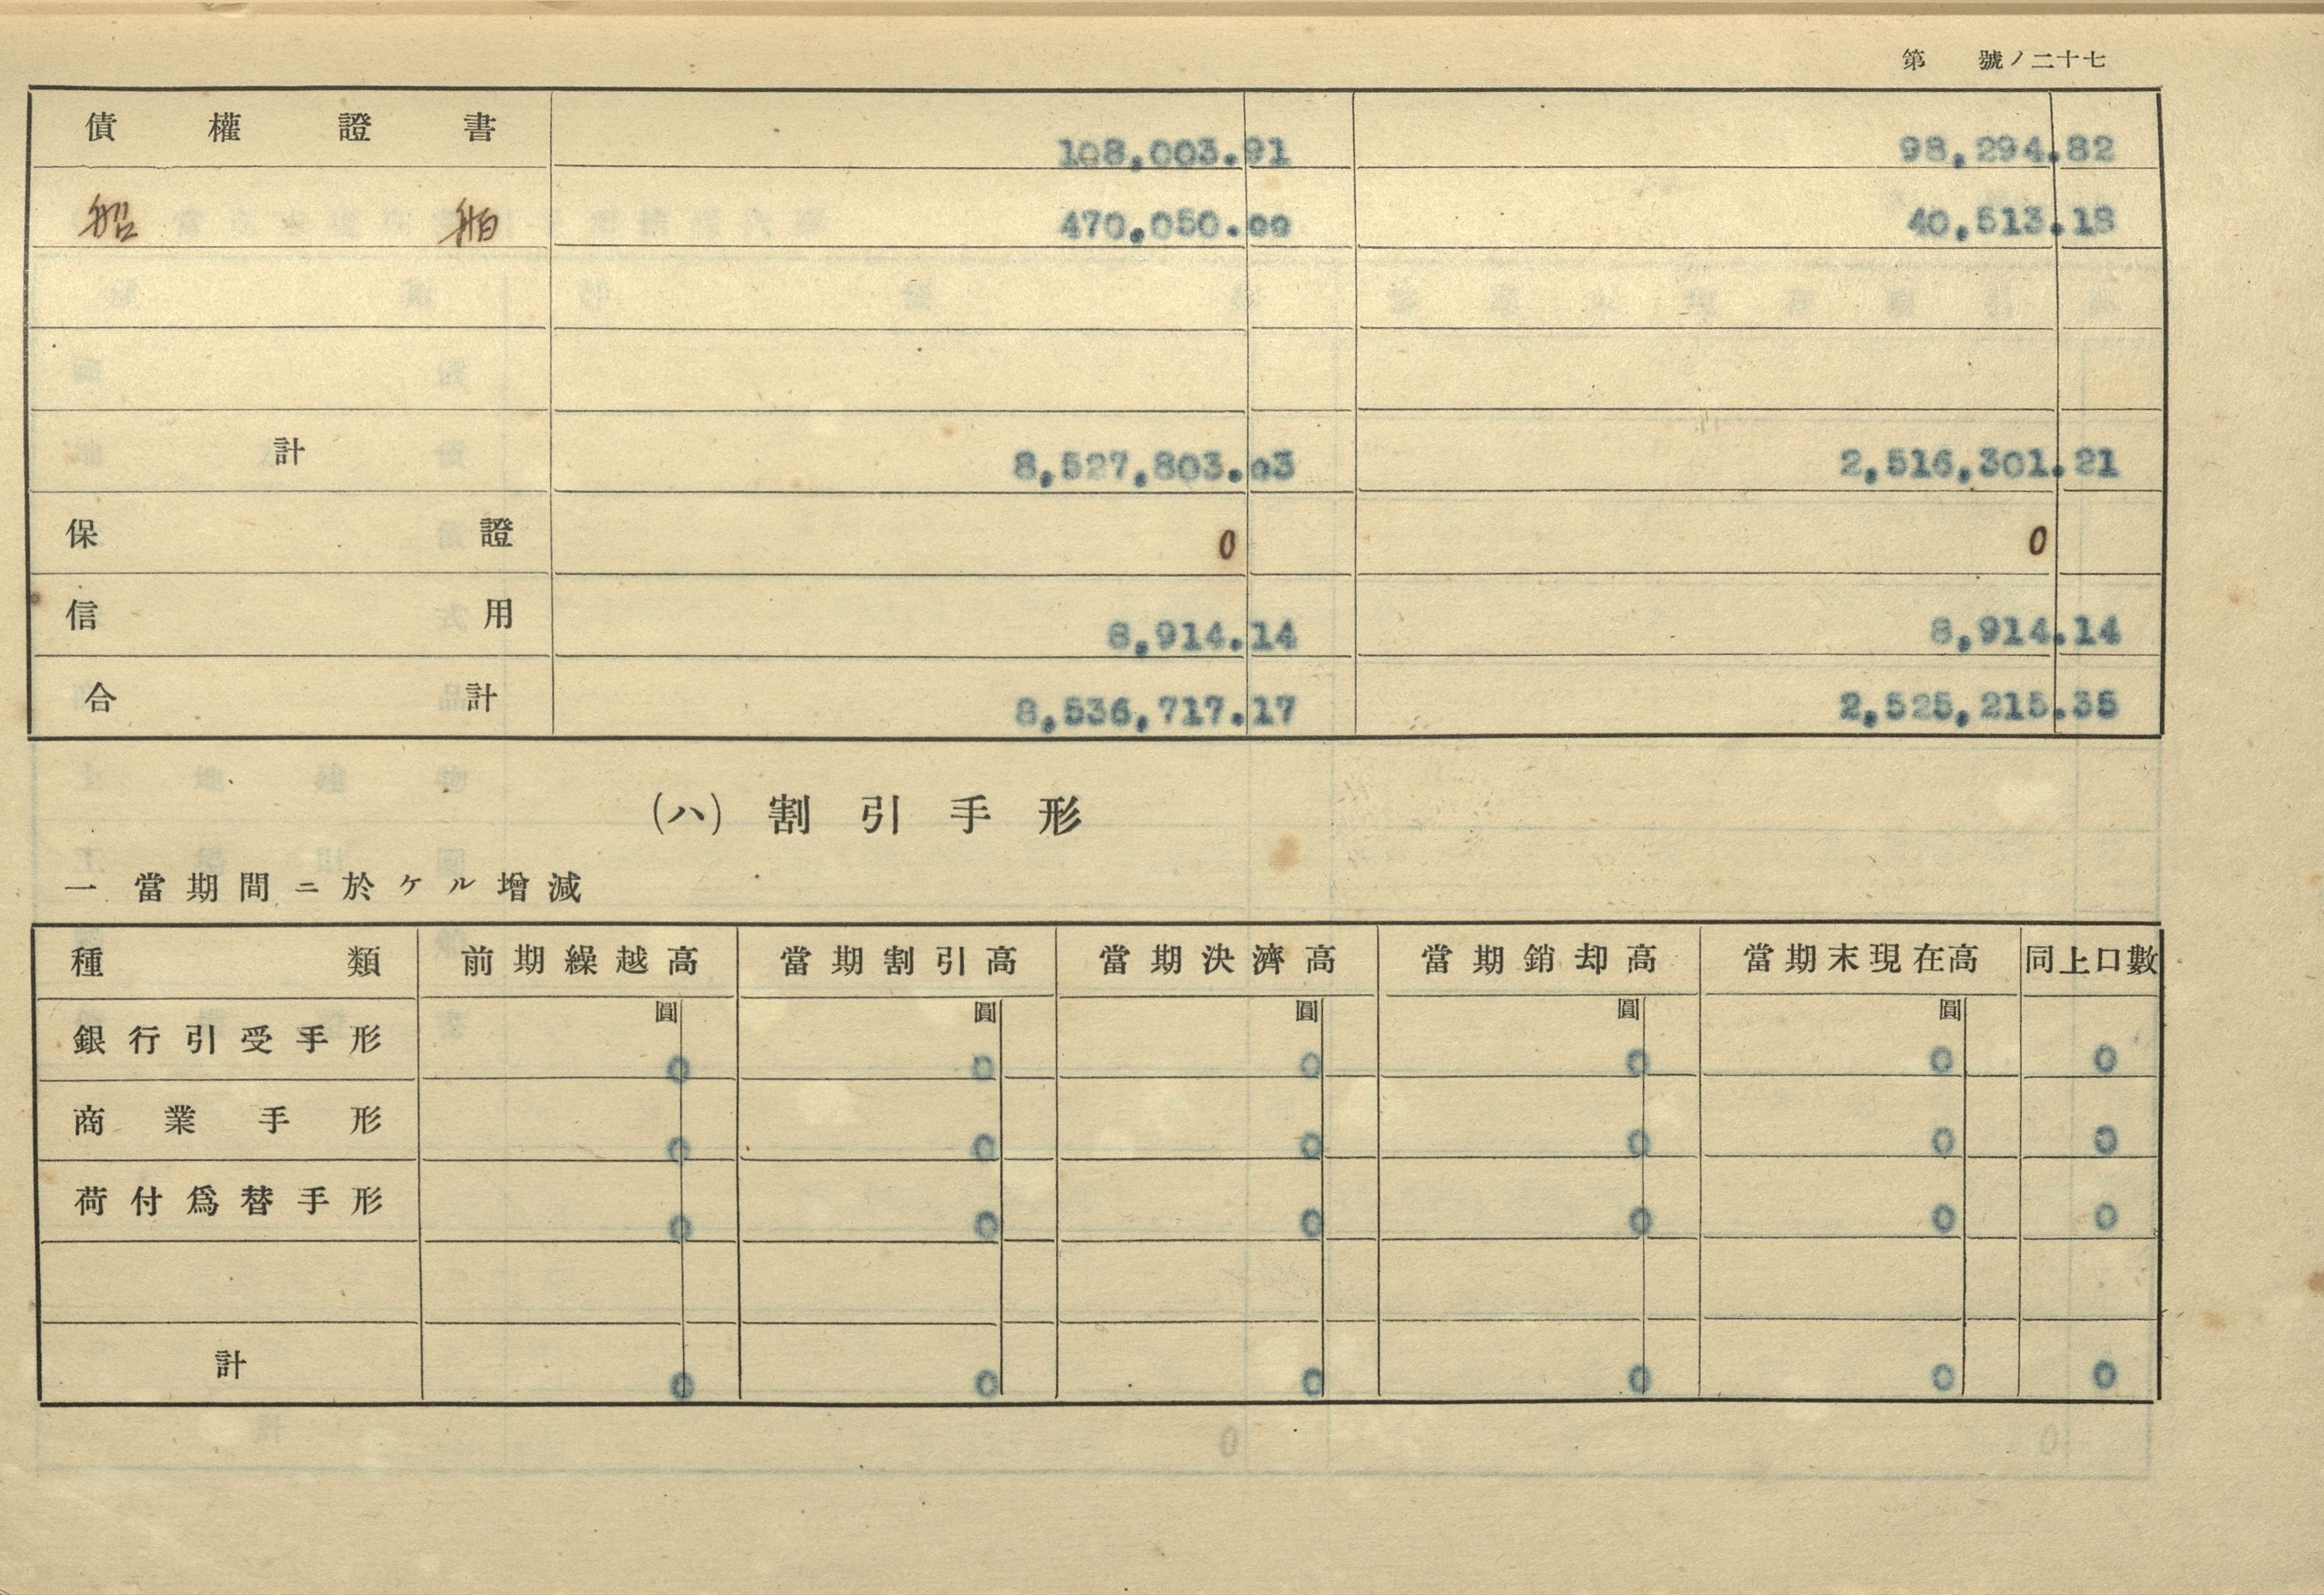 第 號ノ二十七
債權證書 108,003.91 98,294.82
船舶 470,050.00 40,513.18
計 8,527,803.03 2,516,301.21
保證 0 0
信用 8,914.14 8,914.14
合計 8,536,717.17 2,525,215.35
(ハ) 割引手形
一 當期間ニ於ケル增減
種類 前期繰越高 當期割引高 當期決濟高 當期銷却高 當期末現在高 同上口數
圓 圓 圓 圓 圓
銀行引受手形 0 0 0 0 0 0
商業手形 0 0 0 0 0 0
荷付爲替手形 0 0 0 0 0 0
計 0 0 0 0 0 0